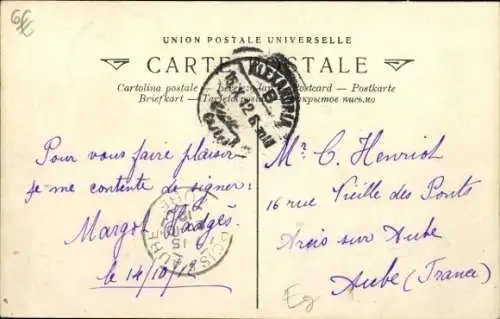 UNION POSTALE UNIVERSELLE
CARTE POSTALE
Cartolina postale — Postcard — Postkarte
Briefkart — Tarjeta postal
ALEXANDRIA
Pour vous faire plaisir
je me contente de signer:
Margot Hadgès.
le 14/10/12
Mr C. Henriot
16 rue Vieille des Ponts
Arcis sur Aube
Aube (France)
Eg